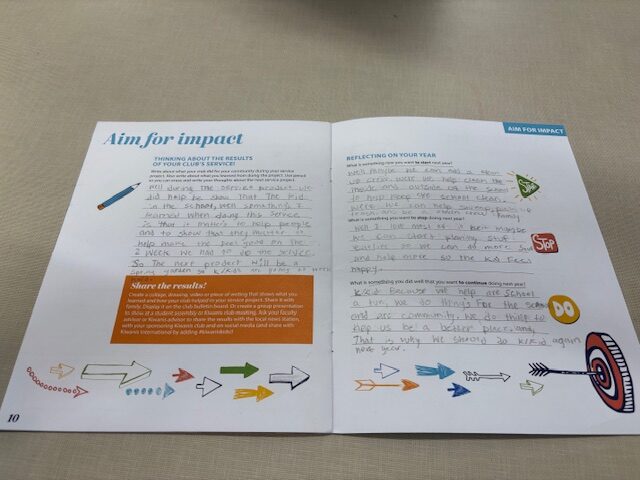 Aim for impact
THINKING ABOUT THE RESULTS
OF YOUR CLUB'S SERVICE!
Write about what your club did for your community during your service
project. Also write about what you learned from doing the project. Use pencil
so you can erase and write your thoughts about the next service project.
Well during the service product we
did help to show that the kid
in the school, well something I
learned when doing this service
is that it matters to help people
and to show that they matter
help make the feel good on the
2 week we had to do the service.
So The next product will be a
spring garden so k/kids are going at week
Share the results!
Create a collage, drawing, video or piece of writing that shows what you
learned and how your club helped in your service project. Share it with
family. Display it on the club bulletin board. Or create a group presentation
to show at a student assembly or Kiwanis club meeting. Ask your faculty
advisor or Kiwanis advisor to share the results with the local news station,
with your sponsoring Kiwanis club and on social media (and share with
Kiwanis International by adding #kiwaniskids)!
10
AIM FOR IMPACT
REFLECTING ON YOUR YEAR
What is something new you want to start next year?
Well maybe we can add a clean
up crew were we help clean the
inside and outside of the school
to help keep the school clean.
Week we can help
teach are be a clean crew thing
START
What is something you want to stop doing next year?
Well I love most of it but maybe
we can start planing stuff
earlier so we can do more stuff
and help more so the kid feel
happy.
STOP
What is something you did well that you want to continue doing next year?
k/kid Because we help are school
a ton, we do things for the school
and are community, we do thing to
help us be a better place, and
That is why we should do k/kid again
next year.
DO